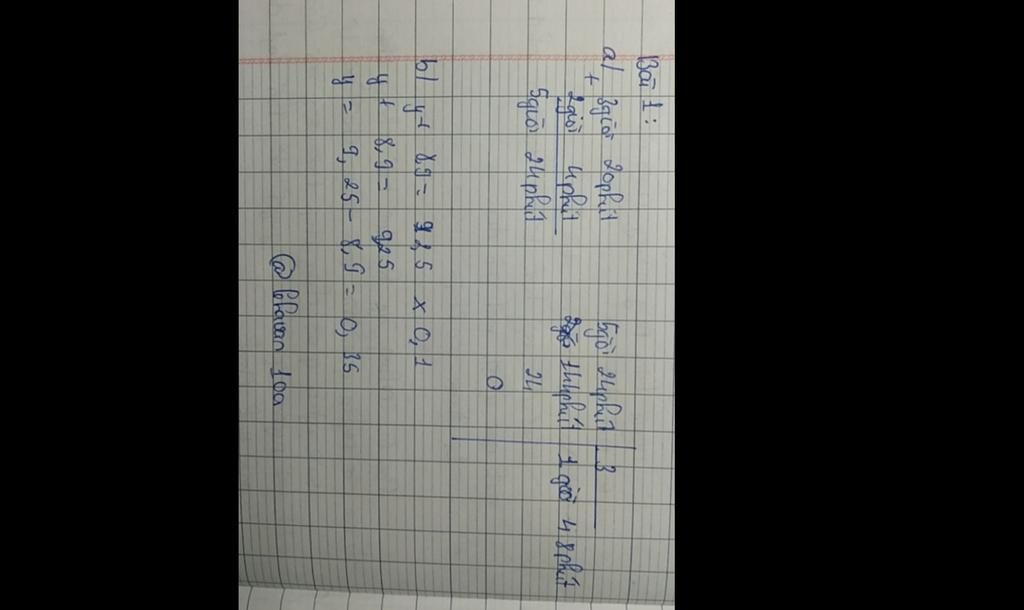 Bài 1:
a/ + 3giờ 20phút
2giờ 4phút
5giờ 24phút
5giờ 24phút | 3
144phút | 1 giờ 48phút
24
0
b/ y + 8,9 = 92,5 x 0,1
y + 8,9 = 9,25
y = 9,25 - 8,9 = 0,35
@bhavan 10a